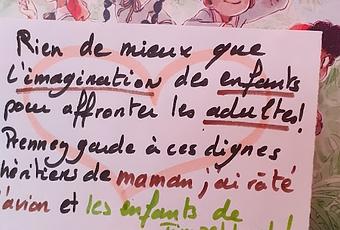 Rien de mieux que
l'imagination des enfants
pour affronter les adultes!
Prenney garde à ces dignes
héritiers de maman j'ai râté
l'avion et les enfants de